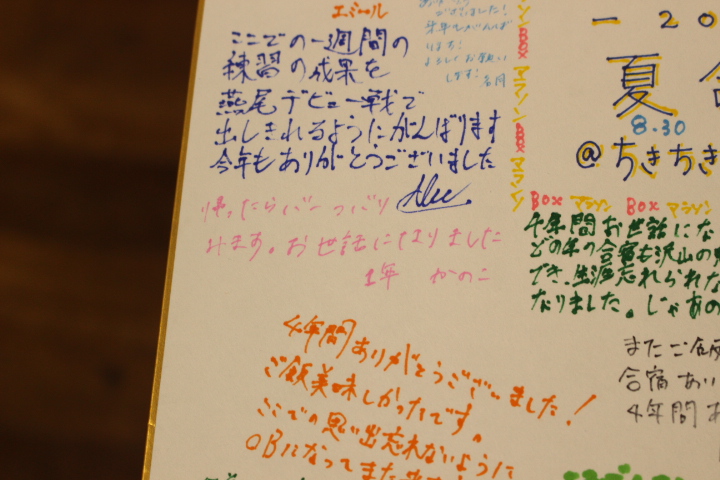 エミール
ここでの一週間の
練習の成果を
燕尾デビュー戦で
出しきれるようにがんばります
今年もありがとうございました
ございました!
来年もがんば
ります!
よろしくお願い
します!
BOX マラソン BOX マラソン
- 20
夏 合
8.30
@ちきちき
BOX マラソン BOX マラソン
帰ったら
みます。お世話になりました
1年 かのこ
4年間お世話にな
どの年の合宿も沢山の
でき、生涯忘れられな
なりました。じゃあの
4年間ありがとうございました!
ご飯美味しかったです。
ここでの思い出忘れないように
OBになってまた
またご
合宿あり
4年間お